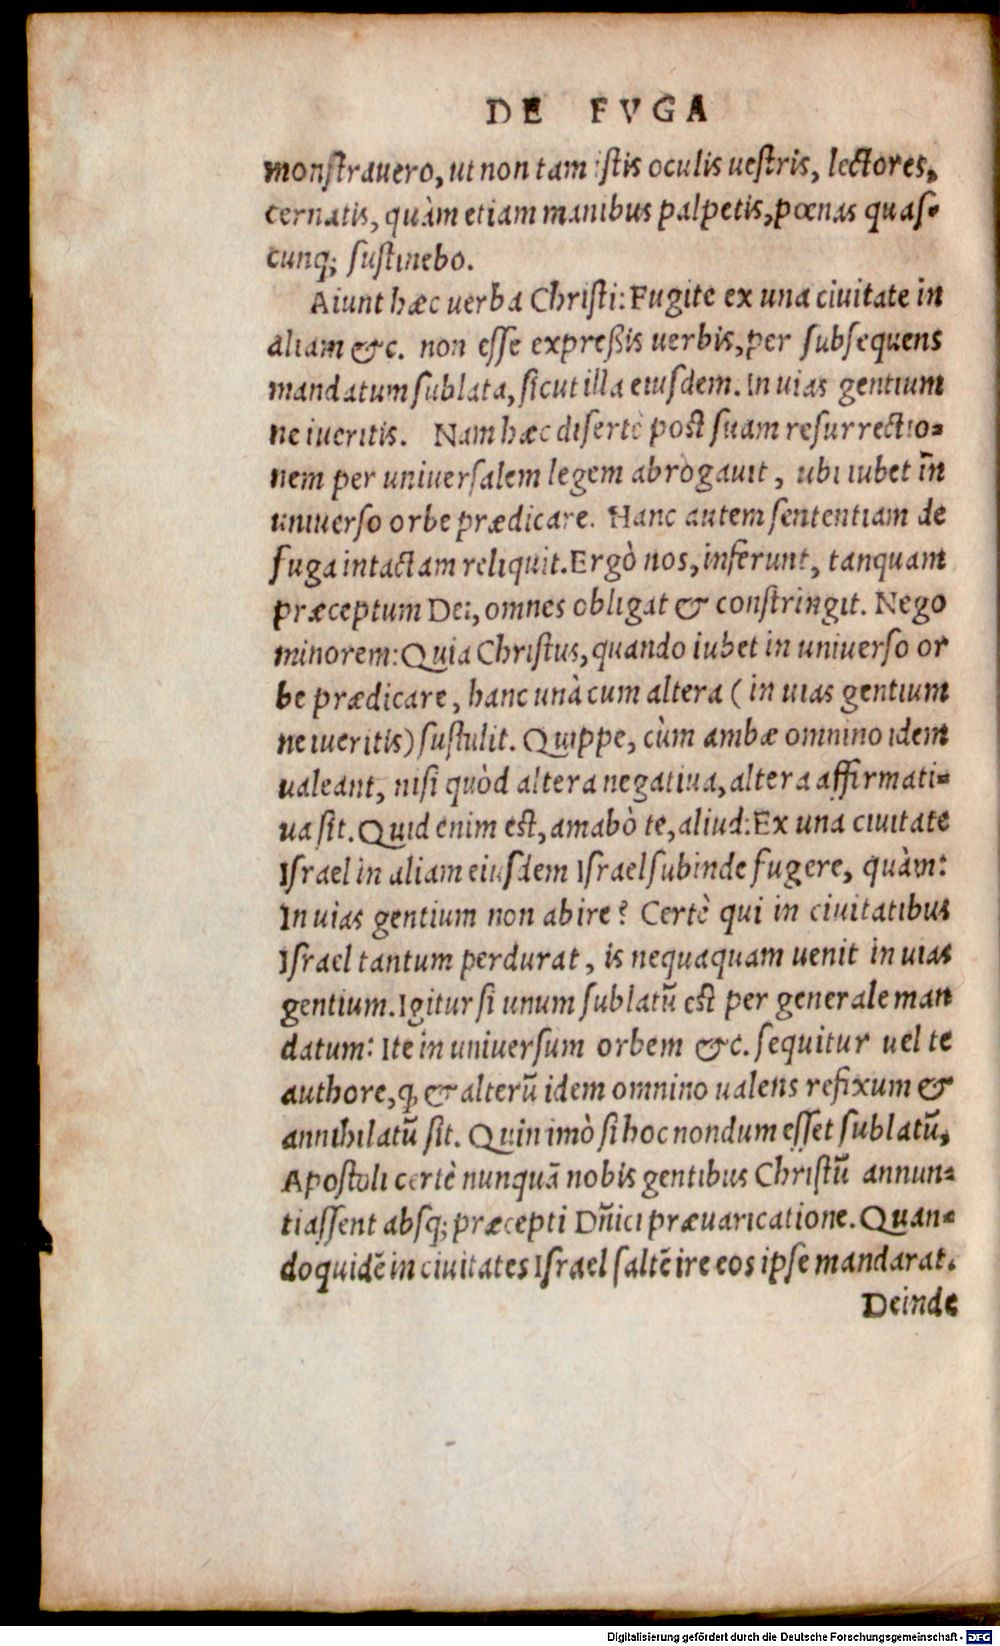 DE FVGA
monstrauero, ut non tam istis oculis uestris, lectores,
cernatis, quàm etiam manibus palpetis, pœnas quas-
cunq; sustinebo.
Aiunt hæc uerba Christi: Fugite ex una ciuitate in
aliam &c. non esse expreßis uerbis, per subsequens
mandatum sublata, sicut illa eiusdem. In uias gentium
ne iueritis. Nam hæc disertè post suam resurrectio-
nem per uniuersalem legem abrogauit, ubi iubet iñ
uniuerso orbe prædicare. Hanc autem sententiam de
fuga intactam reliquit. Ergò nos, inferunt, tanquam
præceptum Dei, omnes obligat & constringit. Nego
minorem: Quia Christus, quando iubet in uniuerso or
be prædicare, hanc unà cum altera (in uias gentium
ne iueritis) sustulit. Quippe, cùm ambæ omnino idem
ualeant, nisi quòd altera negatiua, altera affirmati-
ua sit. Quid enim est, amabò te, aliud: Ex una ciuitate
Israel in aliam eiusdem Israel subinde fugere, quàm:
In uias gentium non abire? Certè qui in ciuitatibus
Israel tantum perdurat, is nequaquam uenit in uias
gentium. Igitur si unum sublatũ est per generale man
datum: Ite in uniuersum orbem &c. sequitur uel te
authore, q̃ & alterũ idem omnino ualens refixum &
annihilatũ sit. Quin imò si hoc nondum esset sublatũ,
Apostoli certè nunquã nobis gentibus Christũ annun-
tiassent absq; præcepti Dñici præuaricatione. Quan-
doquidẽ in ciuitates Israel saltẽ ire eos ipse mandarat.
Deinde
Digitalisierung gefördert durch die Deutsche Forschungsgemeinschaft - DFG